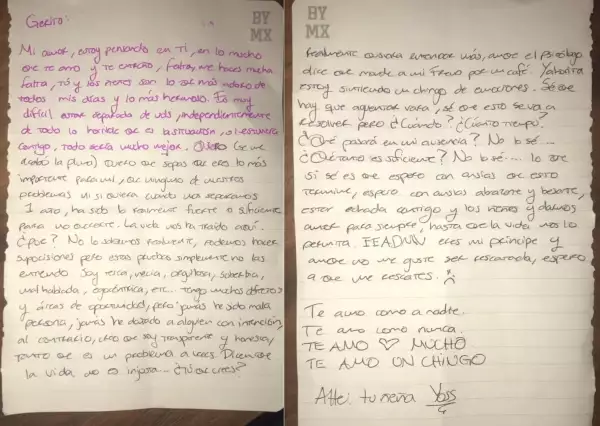 BY
MX
Gerito:
Mi amor, estoy pensando en Tí, en lo mucho
que te amo y te extraño, Fatra, me haces mucha
falta, Tú y los nenes son lo que más adoro de
todos mis días y lo más hermoso. Es muy
difícil estar separada de uds, independientemente
de todo lo horrible que es la situación, si estuviera
contigo, todo sería mucho mejor. Quiero (se me
acabó la pluma) quiero que sepas que eres lo más
importante para mi, que ninguno de nuestros
problemas ni siquiera cuando nos separamos
1 año, ha sido lo realmente fuerte o suficiente
para no quererte. La vida nos ha traído aquí.
¿Por? No lo sabemos realmente, podemos hacer
suposiciones pero estas pruebas simplemente no las
entiendo. Soy terca, necia, orgullosa, soberbia,
mal hablada, egocéntrica, etc... tengo muchos defectos
y áreas de oportunidad, pero jamás he sido mala
persona, jamás he dañado a alguien con intención,
al contrario, creo que soy transparente y honesta,
tanto que es un problema a veces. Dicen que
la vida no es injusta... ¿Tú que crees?
BY
MX
Realmente quisiera entender más, aunque el psicólogo
dice que mande a mi Freud por un café. Yahorita
estoy sintiendo un chingo de emociones. Sé que
hay que aguantar vara, sé que esto se va a
resolver pero ¿Cuándo? ¿Cuánto tiempo?
¿Qué pasará en mi ausencia? No lo sé...
¿Qué tanto es suficiente? No lo sé.... lo que
si sé es que espero con ansias que esto
termine, espero con ansias abrazarte y besarte,
estar echada contigo y los nenes y darnos
amor para siempre, hasta que la vida nos lo
permita. eres mi príncipe y
aunque no me guste ser rescatada, espero
a que me rescates. :(
Te amo como a nadie.
Te amo como nunca.
TE AMO ♡ MUCHO
TE AMO UN CHINGO
Atte: tu nena Yoss